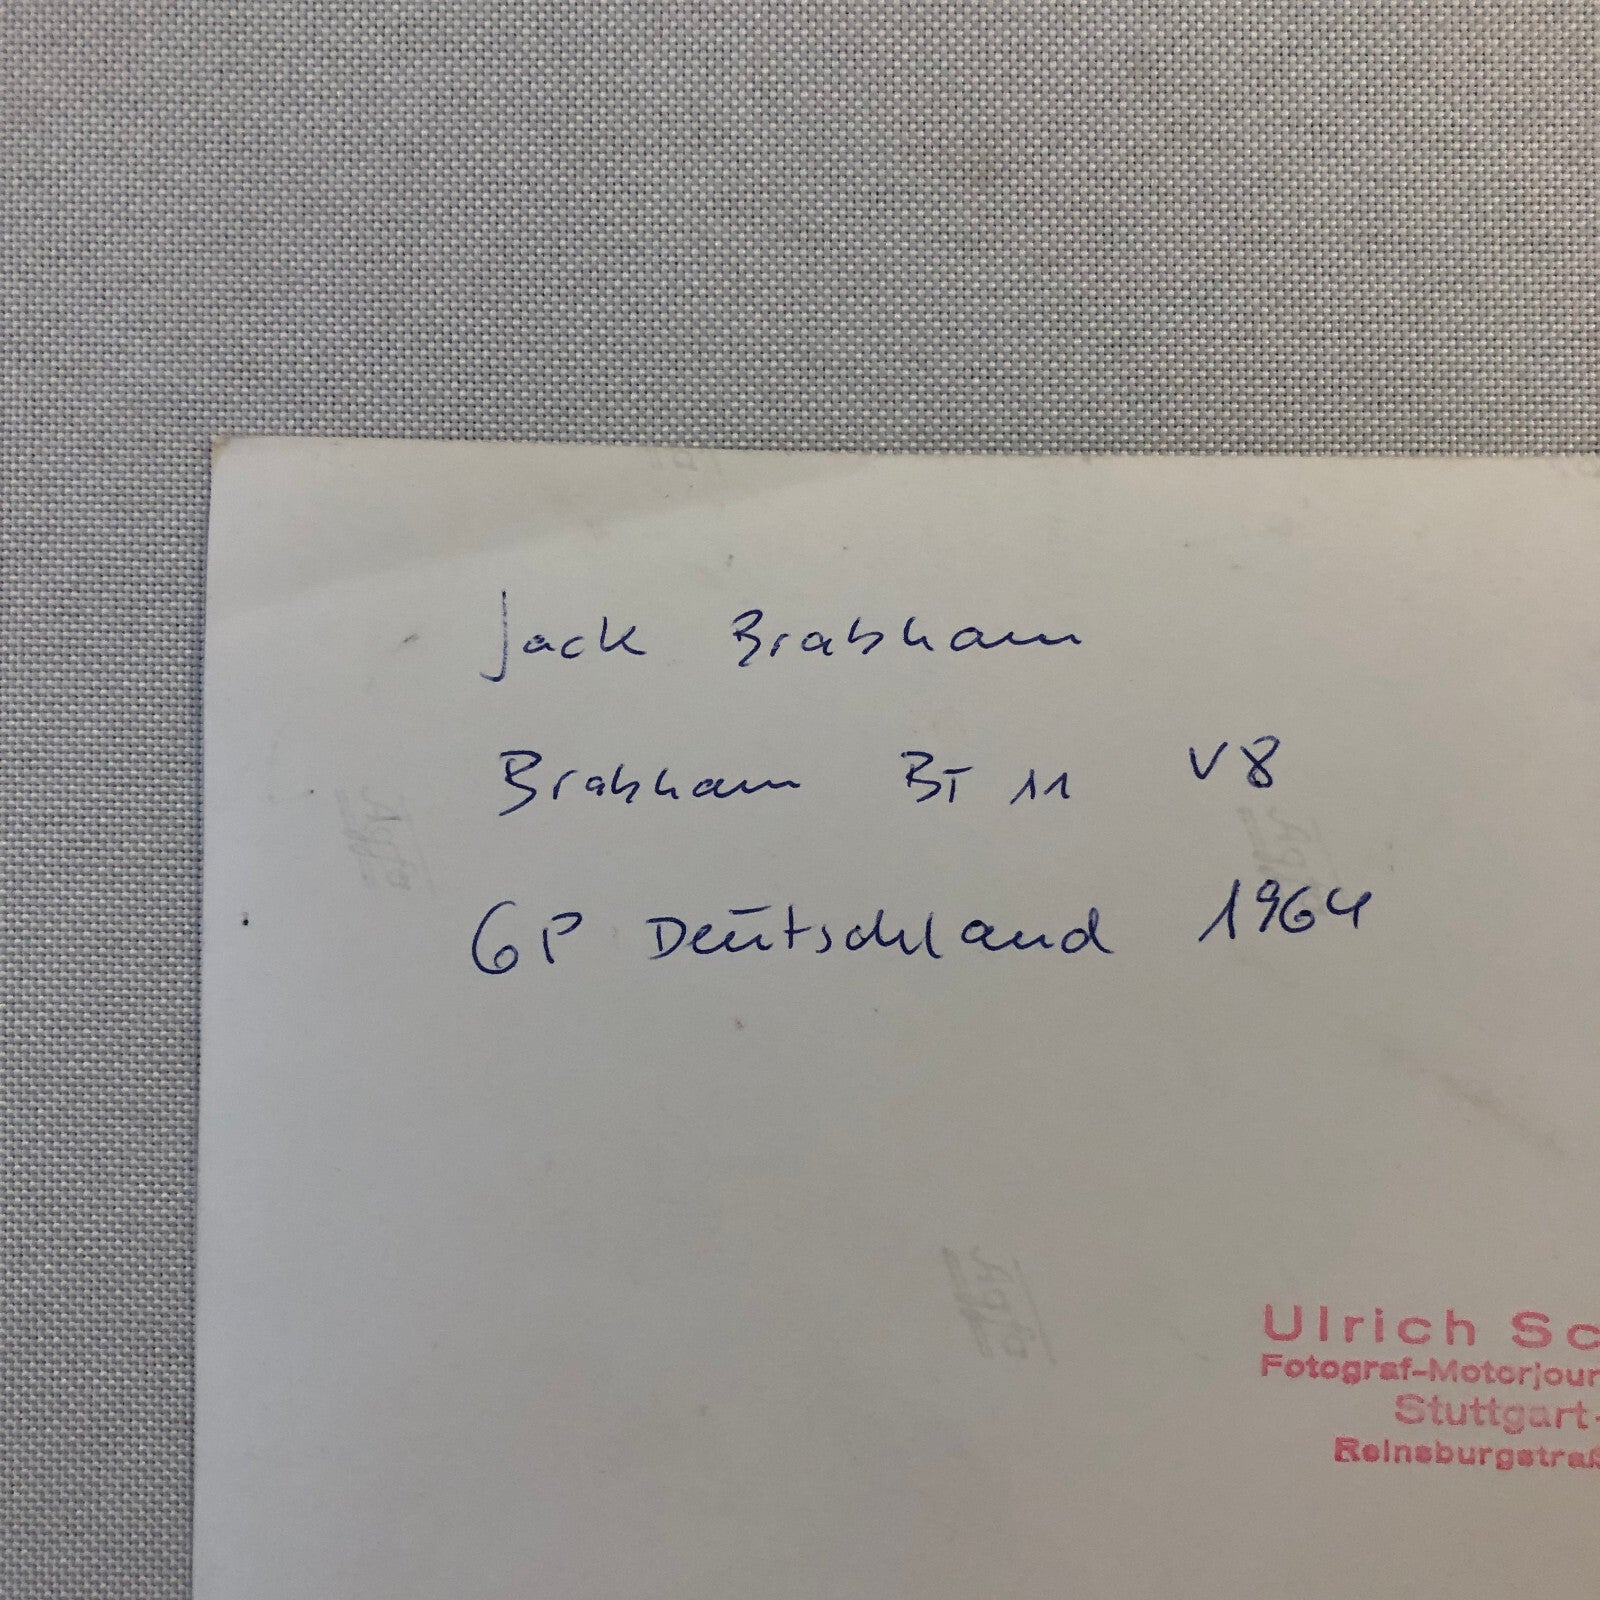 Jack Brabham
Brabham BT 11 V8
GP Deutschland 1964
Ulrich Sc
Fotograf-Motorjour
Stuttgart-
Reinsburgstraß